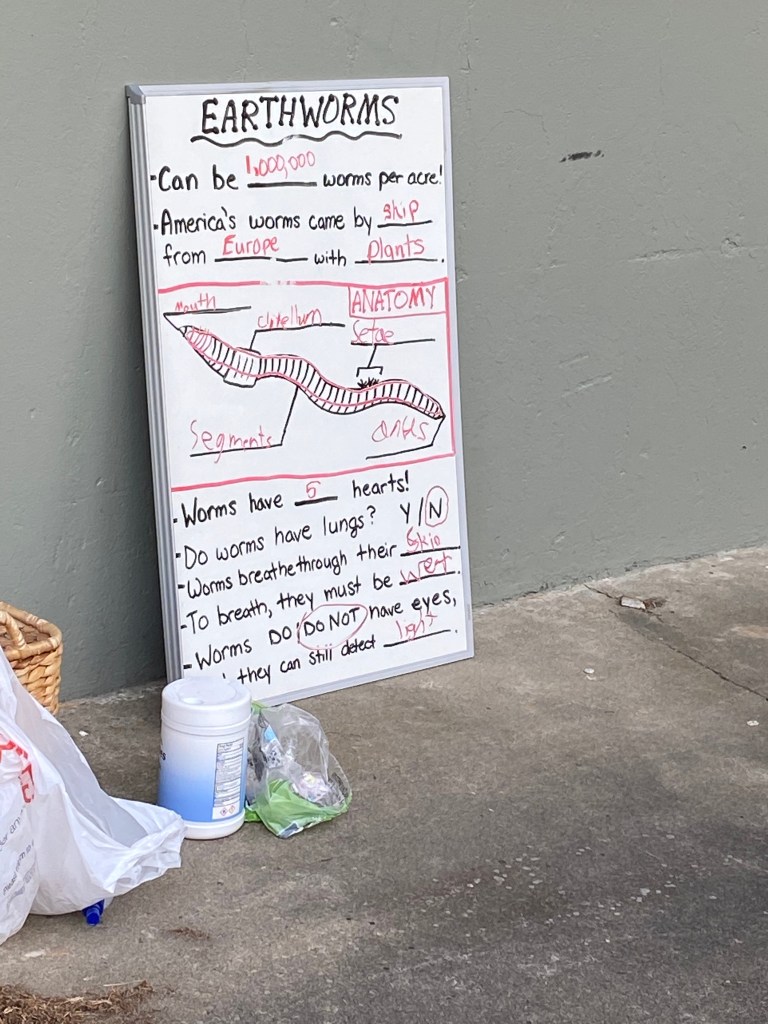 EARTHWORMS
-Can be 1,000,000 worms per acre!
-America's worms came by ship
from Europe with plants.
ANATOMY
Mouth
clitellum
Setae
Segments
anus
-Worms have 5 hearts!
-Do worms have lungs? Y/N
-Worms breathe through their Skin
-To breath, they must be wet.
-Worms DO/DO NOT have eyes,
they can still detect light.